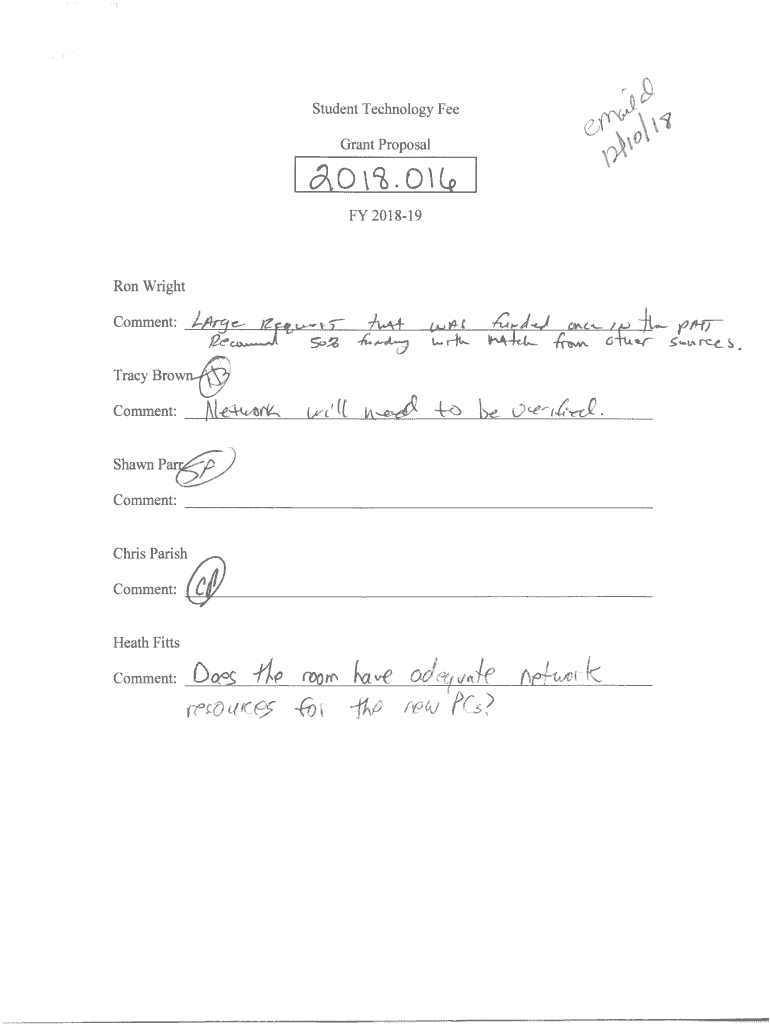 emailed
12/10/18
Student Technology Fee
Grant Proposal
2018.016
FY 2018-19
Ron Wright
Comment: LArge Request that wAs funded once in the pAST
Recommend 50% funding with mAtch from other sources.
Tracy Brown TB
Comment: Network will need to be verified.
Shawn Parr SP
Comment:
Chris Parish
Comment: CP
Heath Fitts
Comment: Does the room have adequate network
resources for the new PCs?